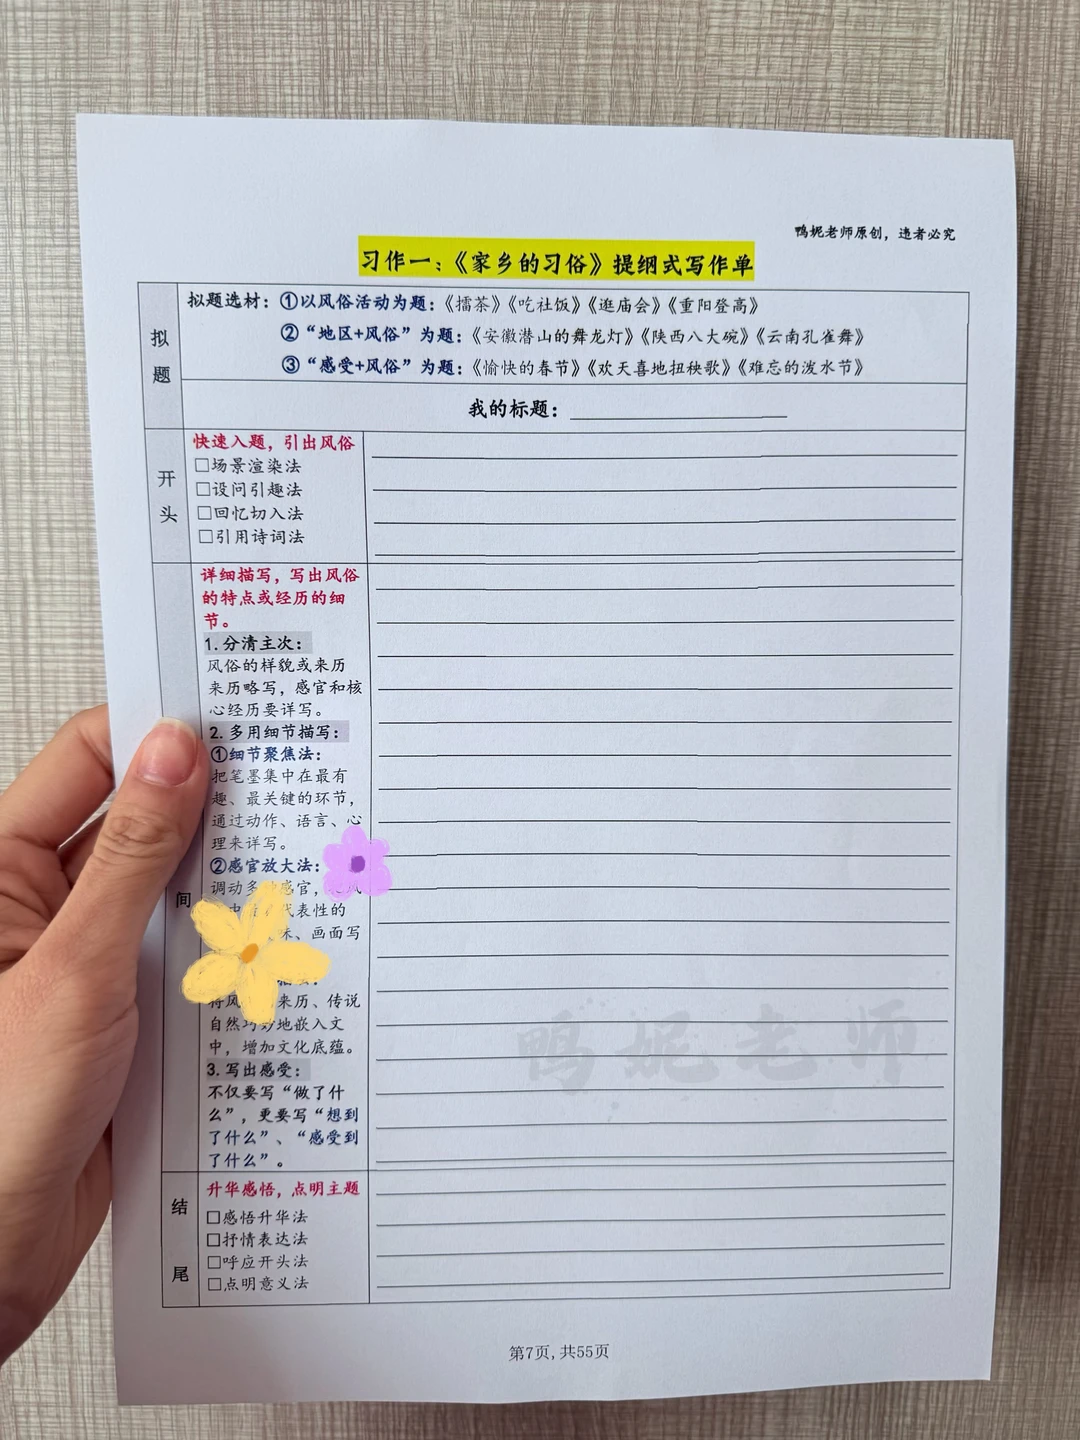 鸭妮老师原创，违者必究
习作一：《家乡的习俗》提纲式写作单
拟题
拟题选材：①以风俗活动为题：《擂茶》《吃社饭》《逛庙会》《重阳登高》
②“地区+风俗”为题：《安徽潜山的舞龙灯》《陕西八大碗》《云南孔雀舞》
③“感受+风俗”为题：《愉快的春节》《欢天喜地扭秧歌》《难忘的泼水节》
我的标题：
开头
快速入题，引出风俗
□场景渲染法
□设问引趣法
□回忆切入法
□引用诗词法
间
详细描写，写出风俗
的特点或经历的细
节。
1.分清主次：
风俗的样貌或来历
来历略写，感官和核
心经历要详写。
2.多用细节描写：
①细节聚焦法：
把笔墨集中在最有
趣、最关键的环节，
通过动作、语言、心
理来详写。
②感官放大法：
调动多 感官，
中 代表性的
味、画面写
将风 来历、传说
自然巧妙地嵌入文
中，增加文化底蕴。
3.写出感受：
不仅要写“做了什
么”，更要写“想到
了什么”、“感受到
了什么”。
结尾
升华感悟，点明主题
□感悟升华法
□抒情表达法
□呼应开头法
□点明意义法
鸭妮老师
第7页,共55页